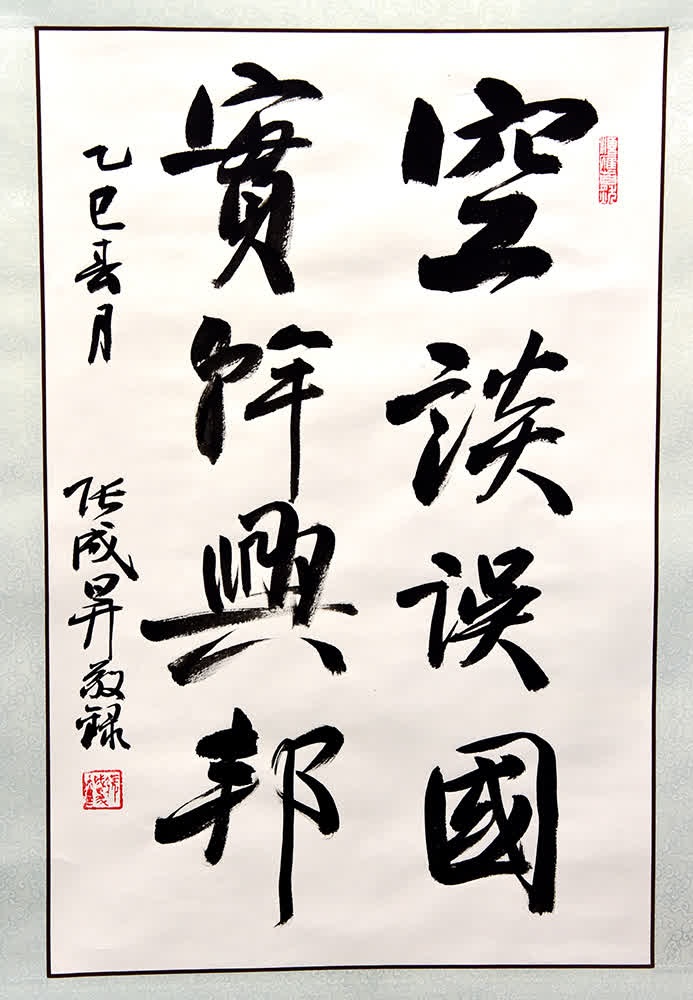 空談誤國
實幹興邦
乙巳春月
張成昇敬録